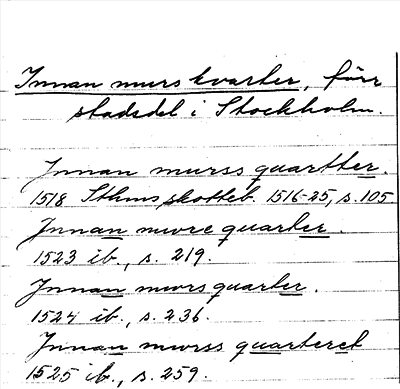 Innan murs kvarter, förr
stadsdel i Stockholm.
Innan murss quartter.
1518 Sthms skotteb. 1516-25, s. 105
Innan mwre quarter.
1523 ib., s. 219.
Innan mwrs quarter.
1524 ib., s. 236.
Innan mwrss quarteret
1525 ib., s. 259.